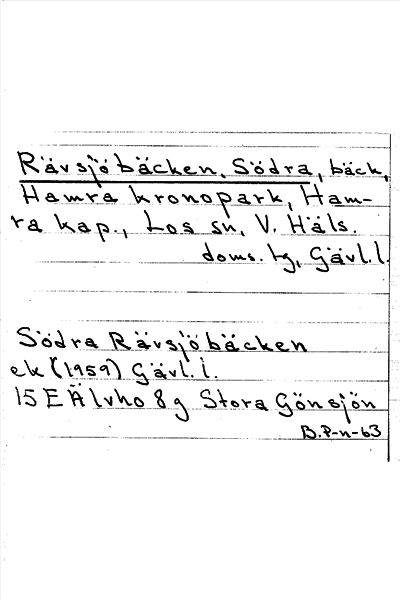 Rävsjöbäcken, Södra, bäck,
Hamra kronopark, Ham-
ra kap., Los sn, V. Häls.
doms. tg, Gävl.l.
Södra Rävsjöbäcken
ek (1959) Gävl.l.
15E Älvho 8g Stora Gönsjön
B.P-n-63